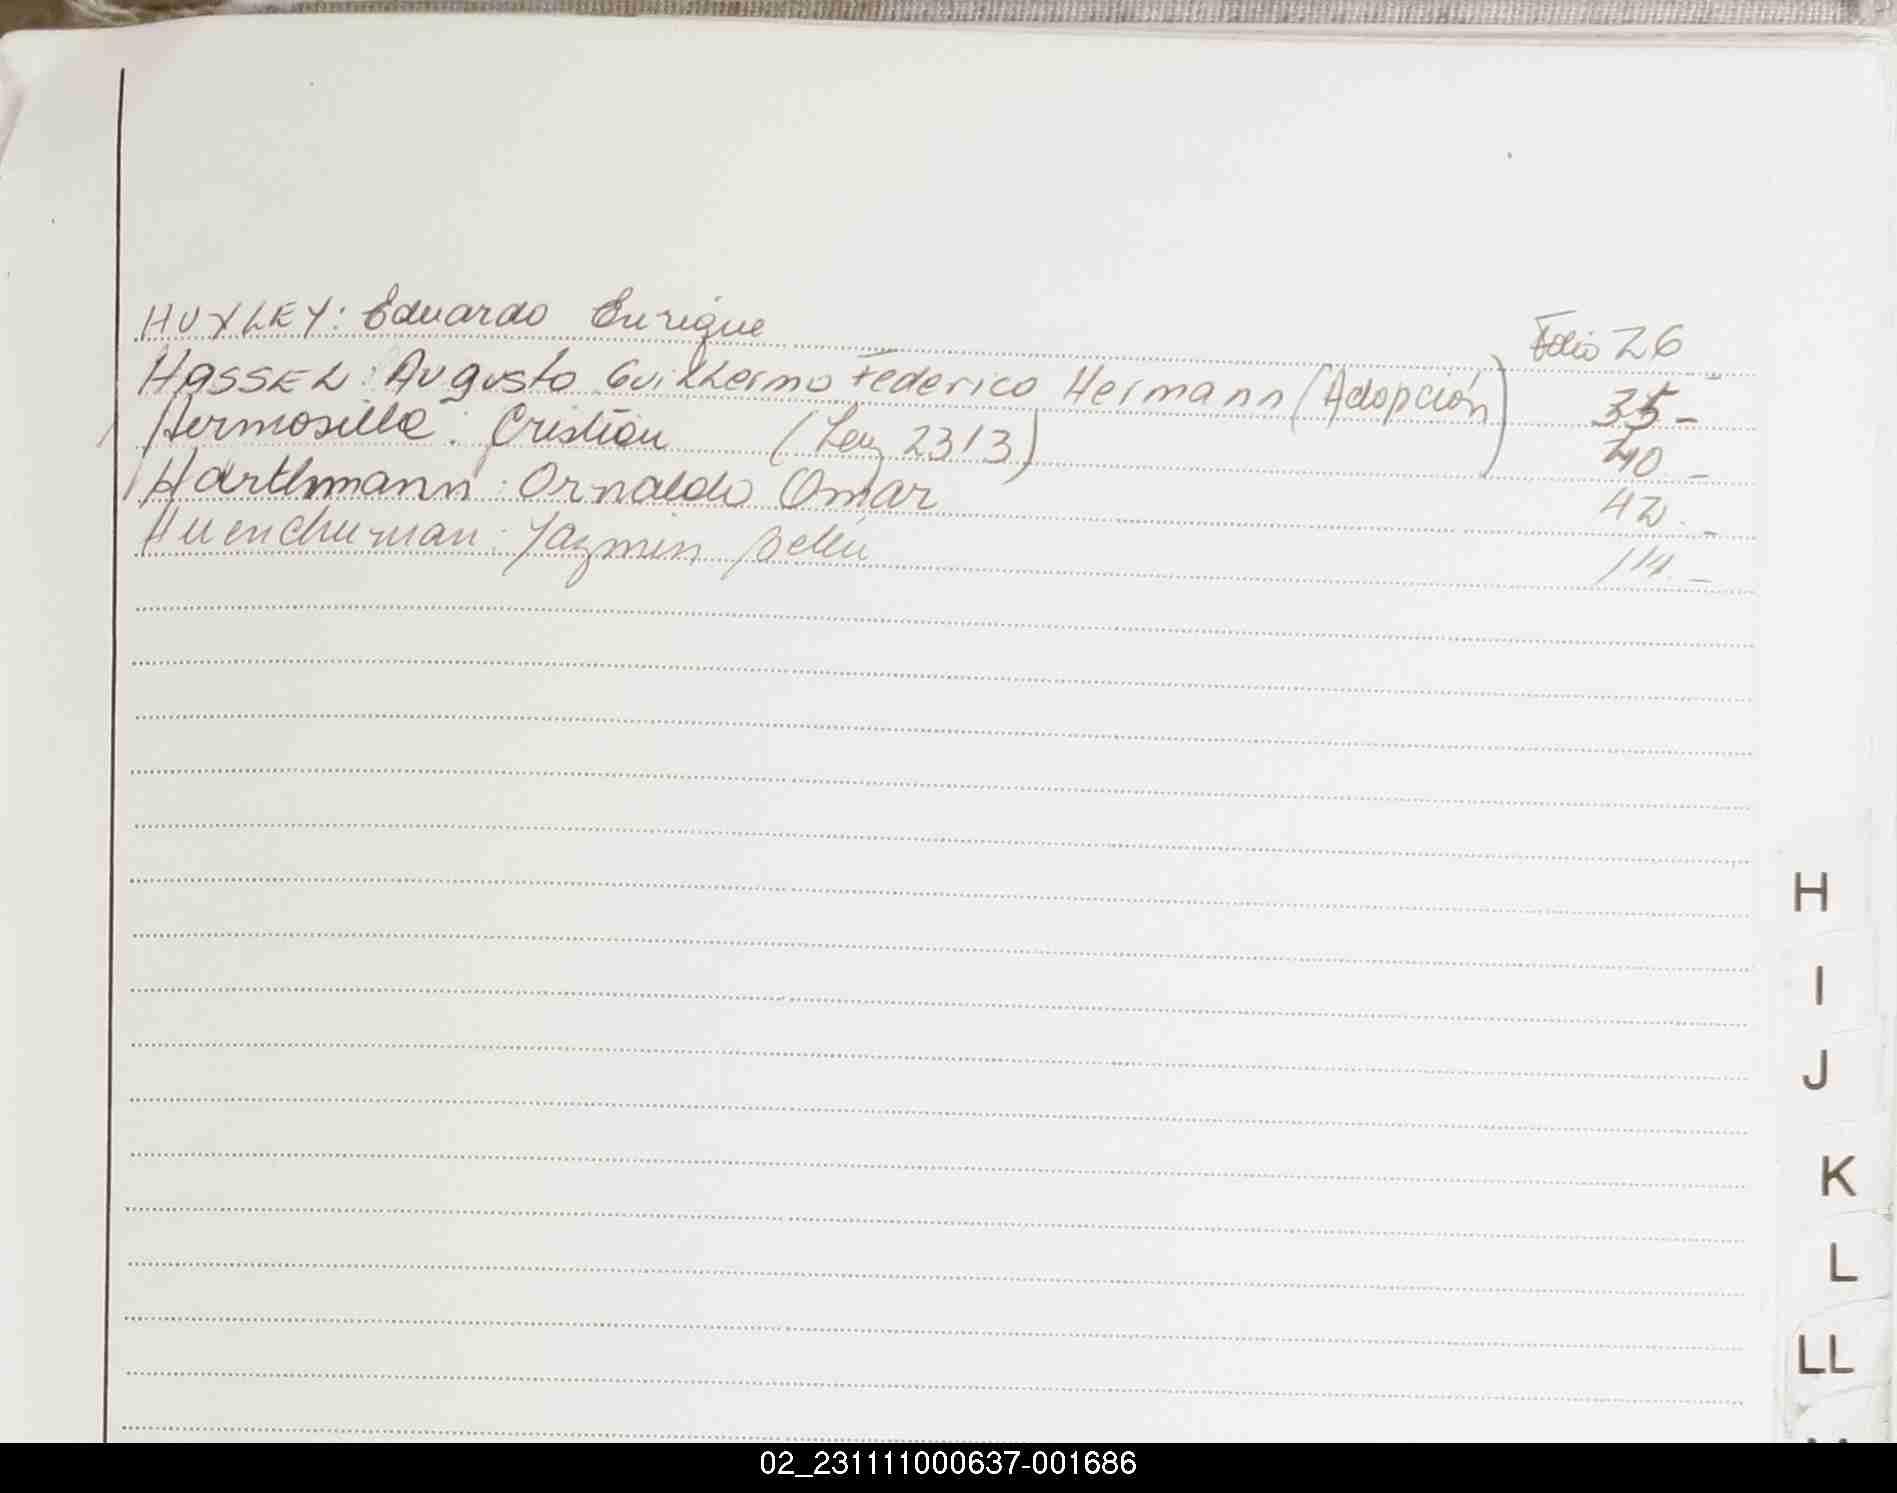 HUXLEY: Eduardo Enrique Folio 26
HASSEL: Augusto Guillermo Federico Hermann (Adopción) 35-
Hermosilla: Cristian (Ley 2313) 40-
Harthmann: Ornaldo Omar 42.-
Huenchuman: Yazmin Belén 114.-
H
I
J
K
L
LL
02_231111000637-001686